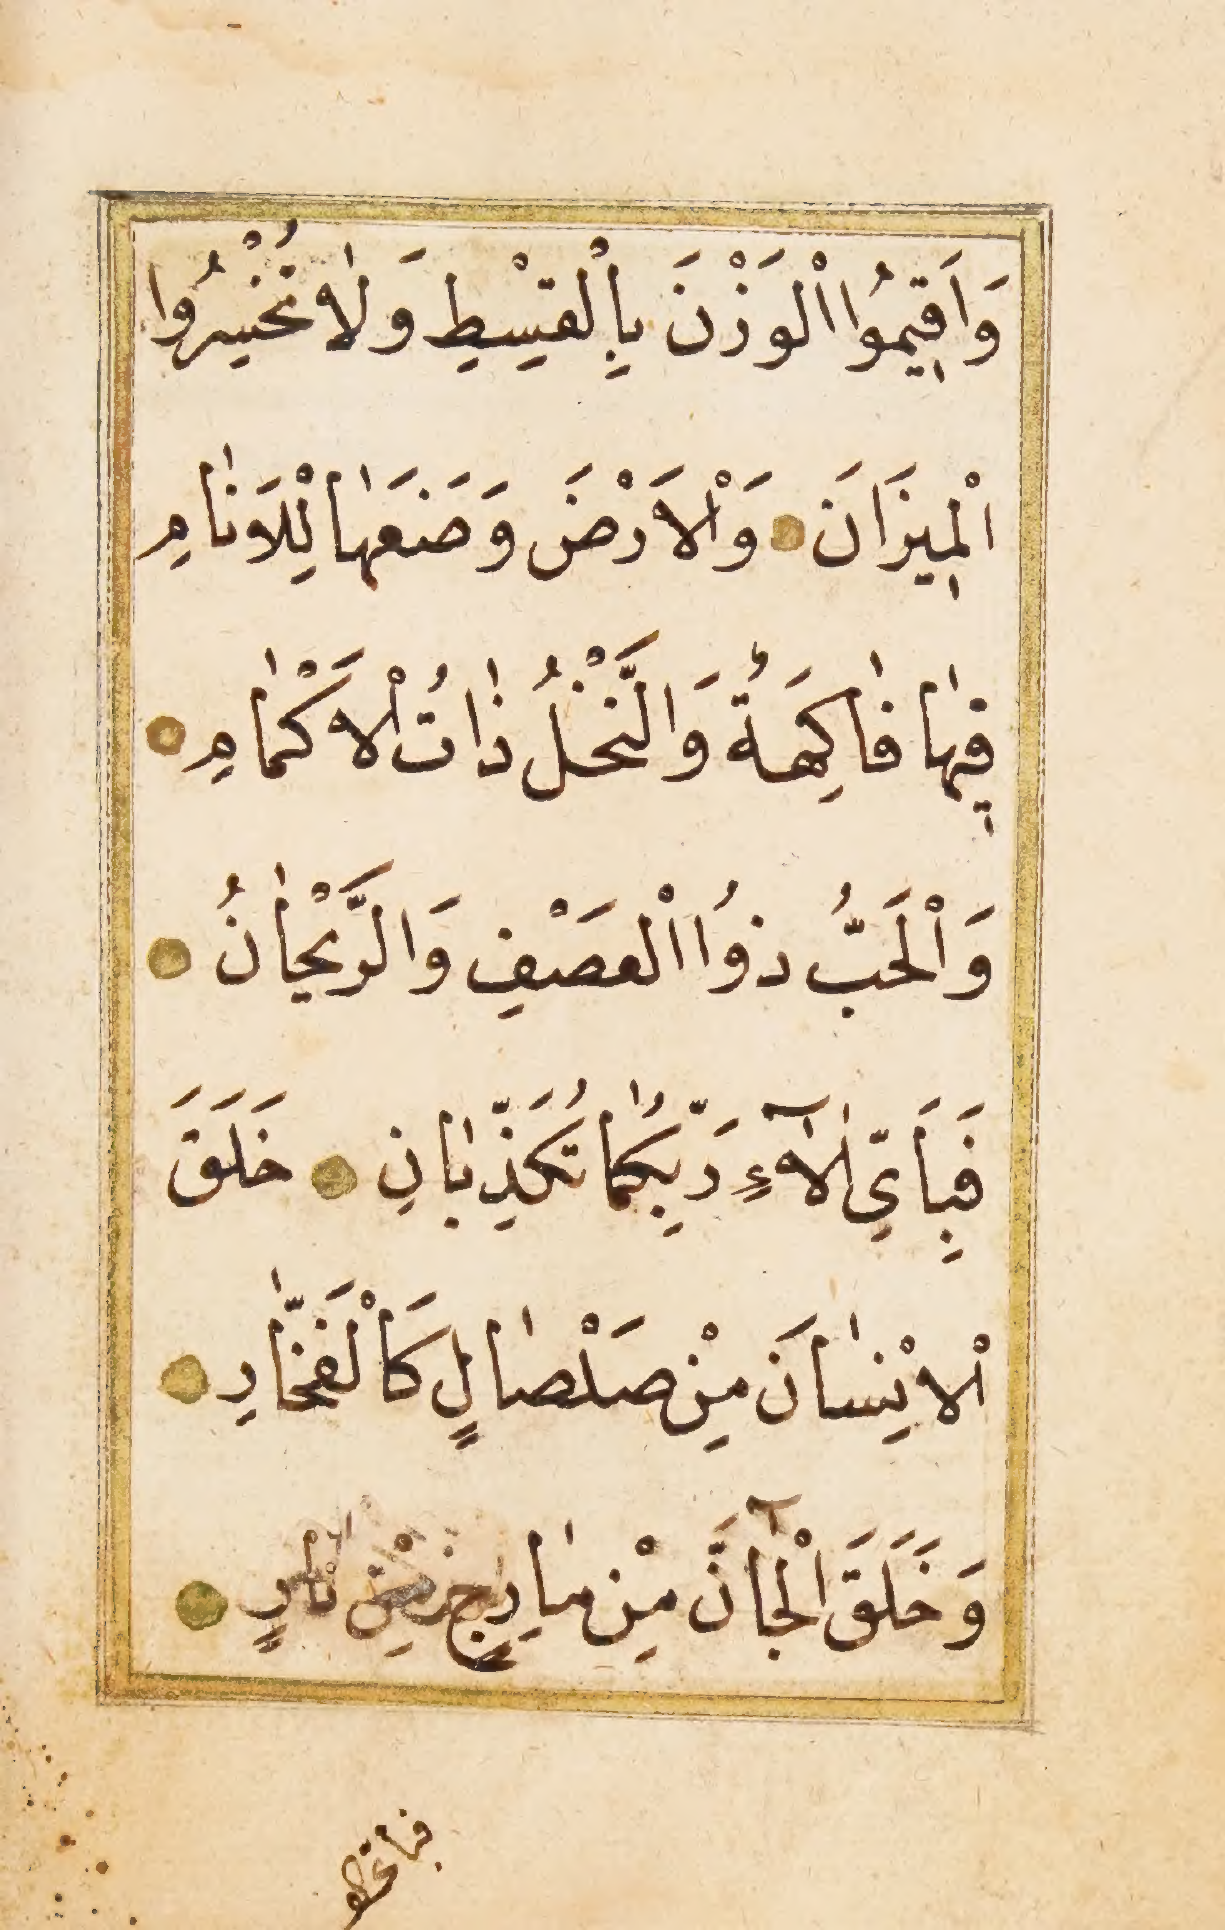 وَاَقِيمُوا الْوَزْنَ بِالْقِسْطِ وَلَا تُخْسِرُوا
الْمِيزَانَ وَالْاَرْضَ وَضَعَهَا لِلْاَنَامِ
فِيهَا فَاكِهَةٌ وَالنَّخْلُ ذَاتُ الْاَكْمَامِ
وَالْحَبُّ ذُواالْعَصْفِ وَالرَّيْحَانُ
فَبِاَيِّ اٰلَآءِ رَبِّكُمَا تُكَذِّبَانِ خَلَقَ
الْاِنْسَانَ مِنْ صَلْصَالٍ كَالْفَخَّارِ
وَخَلَقَ الْجَآنَّ مِنْ مَارِجٍ مِنْ نَارٍ